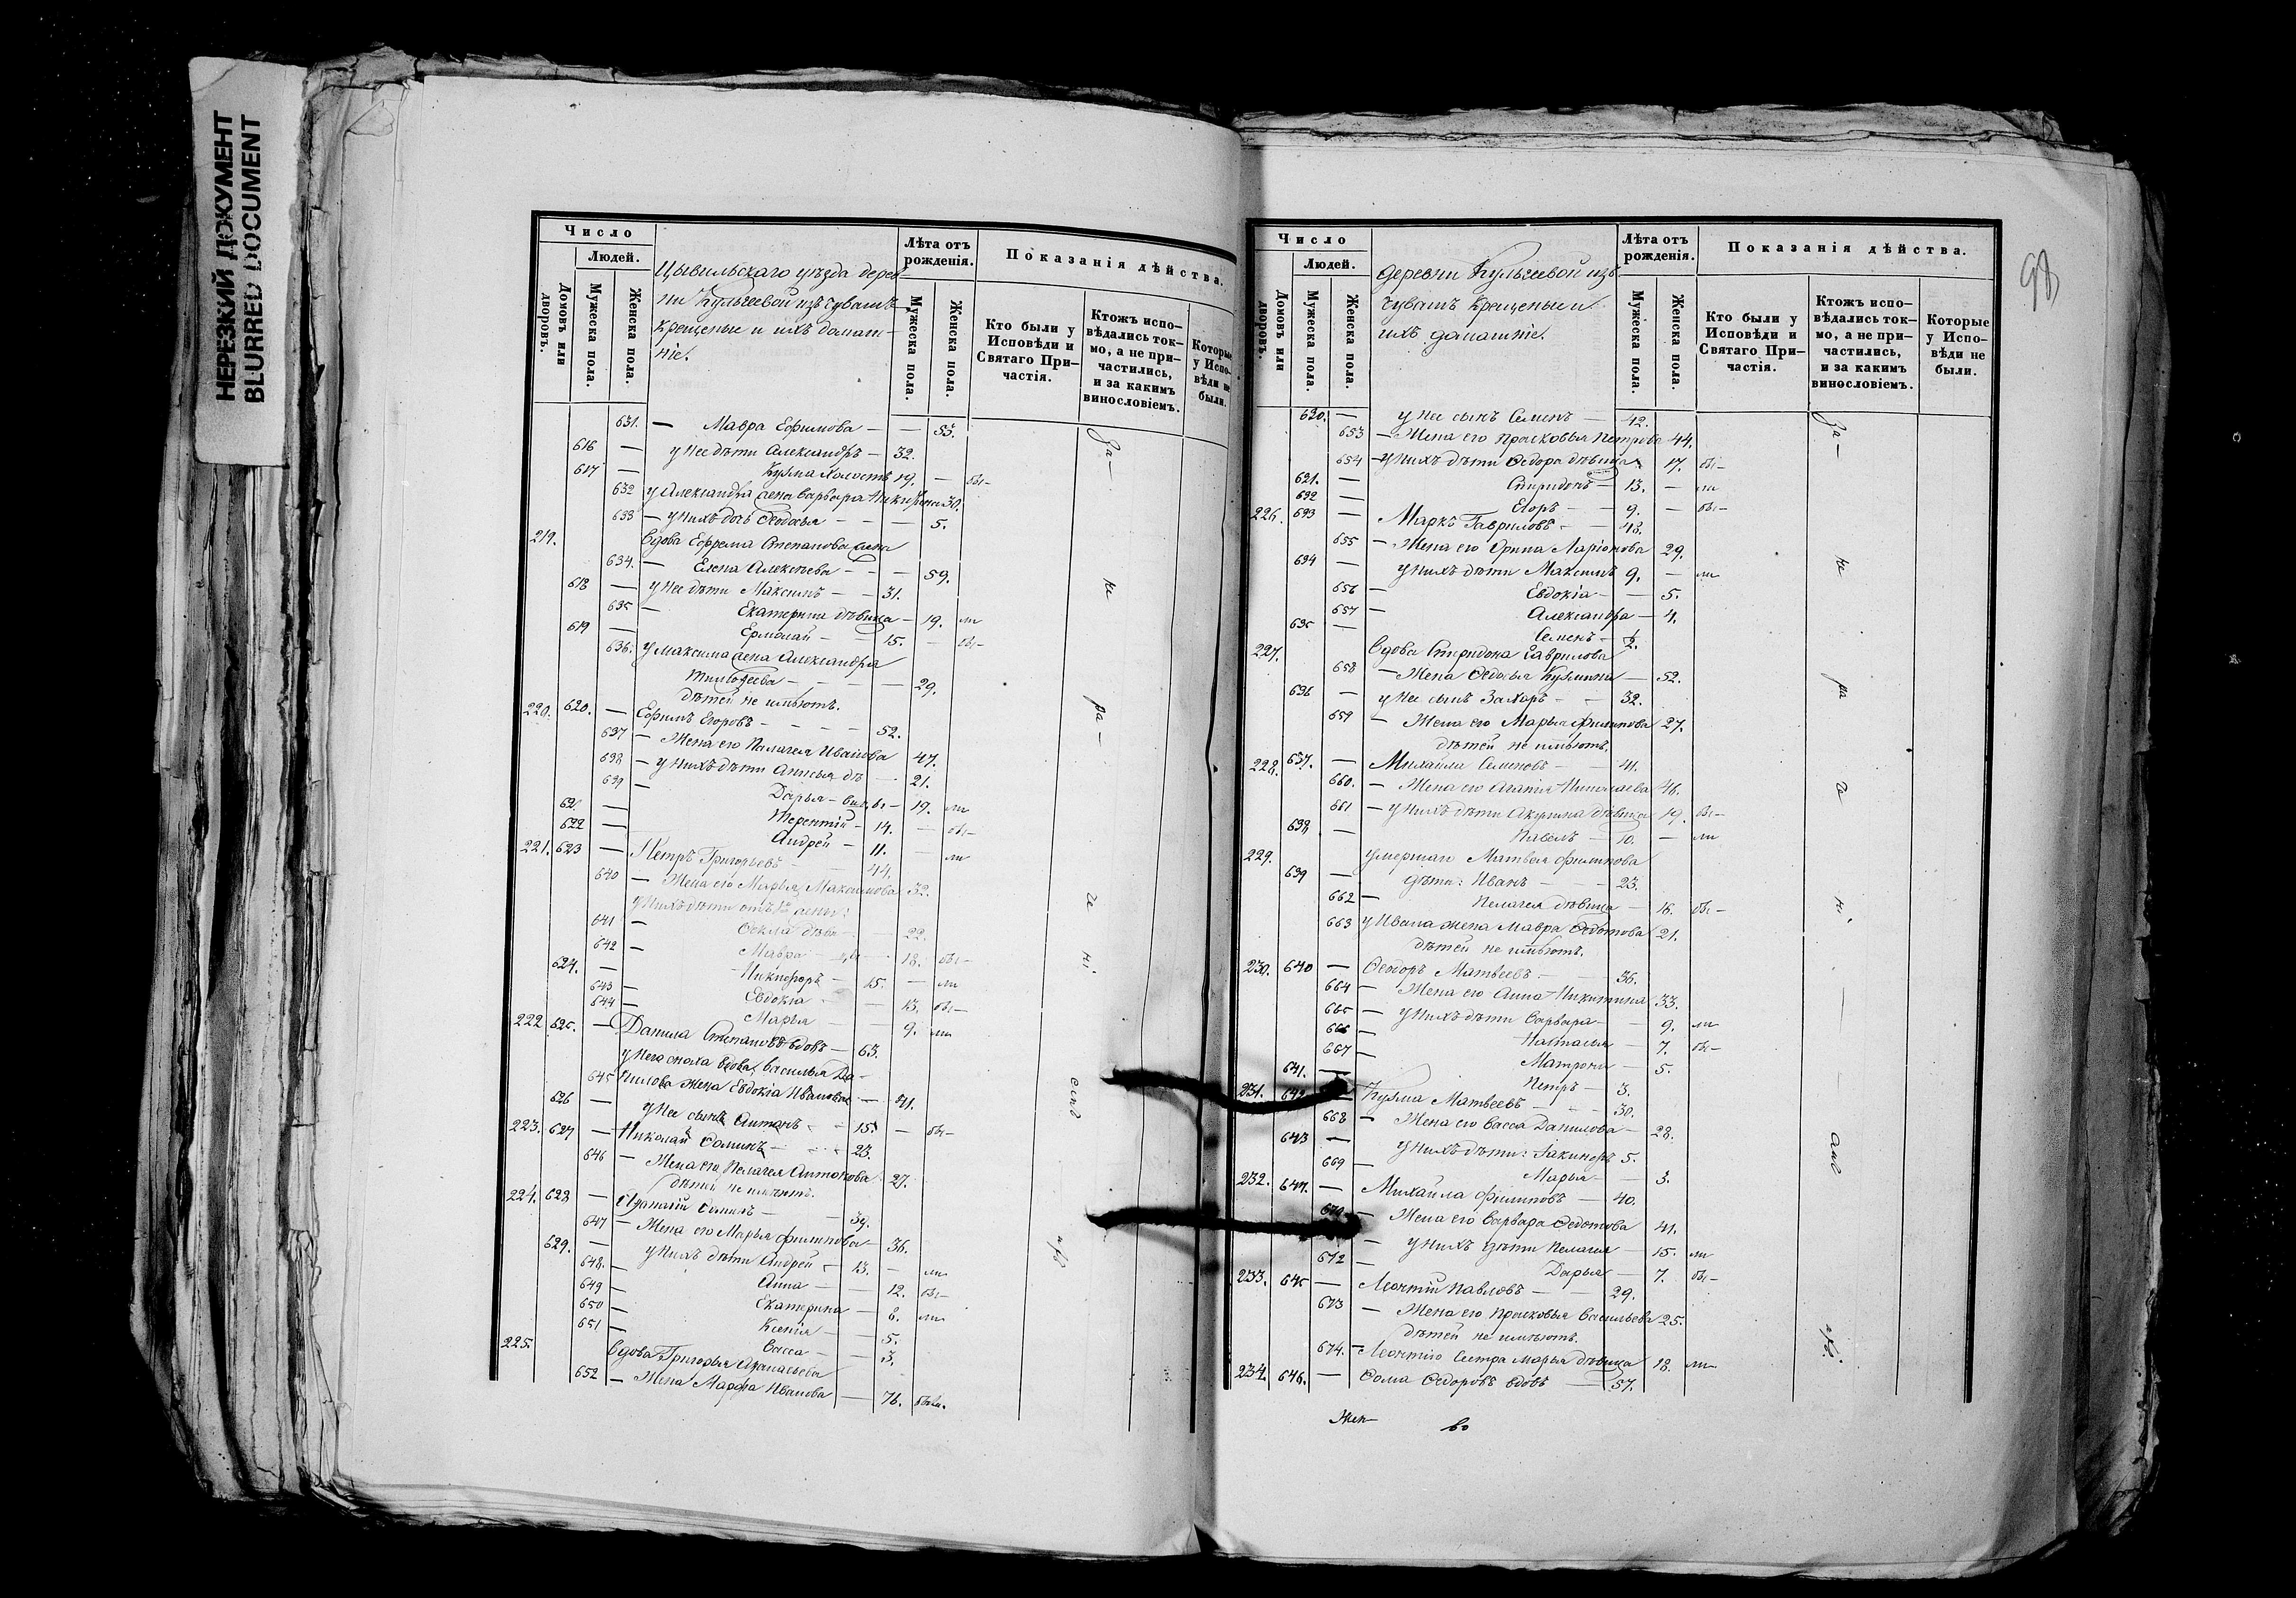 НЕРЕЗКИЙ ДОКУМЕНТ
BLURRED DOCUMENT
Число
Людей.
Домовъ или дворовъ.
Мужеска пола.
Женска пола.
Цывильскаго уѣзда дерев-
ни Кульгеевой изъ чувашъ
крещеные и ихъ домаш-
ніе.
Лѣта отъ рожденія.
Мужеска пола.
Женска пола.
Показанія дѣйства.
Кто были у Исповѣди и Святаго При-частія.
Ктожъ испо-вѣдались ток-мо, а не при-частились, и за какимъ винословіемъ.
Которые у Испо-вѣди не были.
631. — Мавра Ефимова — — 53.
616 — у нее дѣти Александръ — 32.
617 — Кузма холостъ 19. — бы-
632 у Александра жена Варвара Никифорова 30.
633 — у нихъ дочь Феодосья — — — 5.
219. Вдова Ефрема Степанова жена
634. — Елена Алексѣева — — — 59.
618 — у нее дѣти Максимъ — — 31.
635 — Екатерина дѣвица — 19. ли
619 — Ермолай — 15. — бы-
636. у Максима жена Александра
Тимофеева — — — — 29.
дѣтей не имѣютъ.
220. 620. — Ефимъ Егоровъ — — — 52.
637 — Жена его Палагея Иванова 47.
638 — у нихъ дѣти Анисья дѣ — 21.
639 — Дарья — 19. ли
621 — Терентій — 14. — бы-
622 — Андрей — 11. — ли
221. 623 — Петръ Григорьевъ — 44.
640 — Жена его Марья Максимова 32.
у нихъ дѣти отъ 1й жены:
641 — Фекла дѣва — — 22.
642 — Мавра — 18. бы-
624. — Никифоръ — 15. — ли
643 — Евдокія — — 13. бы-
644 — Марья — — 9. ли
222. 625. — Данила Степановъ вдовъ — 63.
у него сноха вдова, Василья Да-
645 нилова жена Евдокія Иванова — 41.
626 — у нее сынъ Антонъ — — 15. — бы-
223. 627 — Николай Фоминъ — 23.
646 — Жена его Пелагея Антонова 27.
дѣтей не имѣютъ.
224. 628 — Афанасій Фоминъ — 39.
647 — Жена его Марья Филипова — 36.
629. — у нихъ дѣти Андрей — 13. — ли
648. — Анна — — 12. бы-
649 — Екатерина — 6. ли
650 — Ксенія — — 5.
651 — Васса — — 3.
225. Вдова Григорья Афанасьева
652 — Жена Марфа Иванова — 76. были.
За-
не
ра-
че
ні
емъ
Число
Людей.
Домовъ или дворовъ.
Мужеска пола.
Женска пола.
деревни Кульгеевой изъ
чувашъ крещеные и
ихъ домашніе.
Лѣта отъ рожденія.
Мужеска пола.
Женска пола.
Показанія дѣйства.
Кто были у Исповѣди и Святаго При-частія.
Ктожъ испо-вѣдались ток-мо, а не при-частились, и за какимъ винословіемъ.
Которые у Испо-вѣди не были.
98
630. — у нее сынъ Семенъ — 42.
653 — Жена его Прасковья Петрова 44.
654 — у нихъ дѣти Федора дѣвица 17. бы-
621. — Спиридонъ — 13. — ли
632 — Егоръ — — 9. — бы-
226. 633 — Маркъ Гавриловъ — — 48.
655 — Жена его Орина Ларіонова 29.
634 — у нихъ дѣти Максимъ 9. — ли
656 — Евдокія — — 5.
657 — Александра — 4.
635 — Семенъ — 2.
227. Вдова Спиридона Гаврилова
658 — Жена Федосья Кузмина — 52.
636 — у нее сынъ Захаръ — — 32.
659 — Жена его Марья Филипова 27.
дѣтей не имѣютъ.
228. 637. — Михайла Семеновъ — — 41.
660. — Жена его Агафія Николаева 46.
661 — у нихъ дѣти Акулина дѣвица 19. бы-
638 — Павелъ — 10. — ли
229. умершаго Матвея Филипова
639 — дѣти: Иванъ — — 23.
662 — Пелагея дѣвица — 16. бы-
663 у Ивана жена Мавра Федотова 21.
дѣтей не имѣютъ.
230. 640 — Феодоръ Матвеевъ — — 36.
664 — Жена его Анна Никитина 33.
665 — у нихъ дѣти Варвара — — 9. ли
666 — Настасья — 7. бы-
667 — Матрона — 5.
641. — Петръ — 3.
231. 642 Кузма Матвеевъ — — — 30.
668 — Жена его Васса Данилова — 28.
643 — у нихъ дѣти: 5.
669 — Марья — — 3.
232. 644. — Михайла Филиповъ — 40.
670 — Жена его Варвара Федотова 41.
— у нихъ дѣти Пелагея — 15. ли
672 — Дарья — 7. бы-
233. 645 — Леонтій Павловъ — — 29.
673 — Жена его Прасковья Васильева 25.
дѣтей не имѣютъ.
674. — Леонтію сестра Марья дѣвица 18. ли
234. 646. — Фома Федоровъ вдовъ — 57.
За-
не
ра
че
ні
емъ